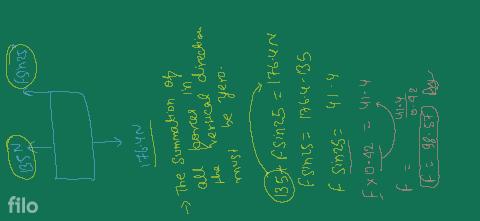 135N
fsin25
176.4N
→ The summation of
all forces in
the vertical direction
must be zero.
135+fsin25 = 176.4N
fsin25 = 176.4-135
f sin25 = 41.4
f x 0.42 = 41.4
f = 41.4/0.42
f = 98.57
filo